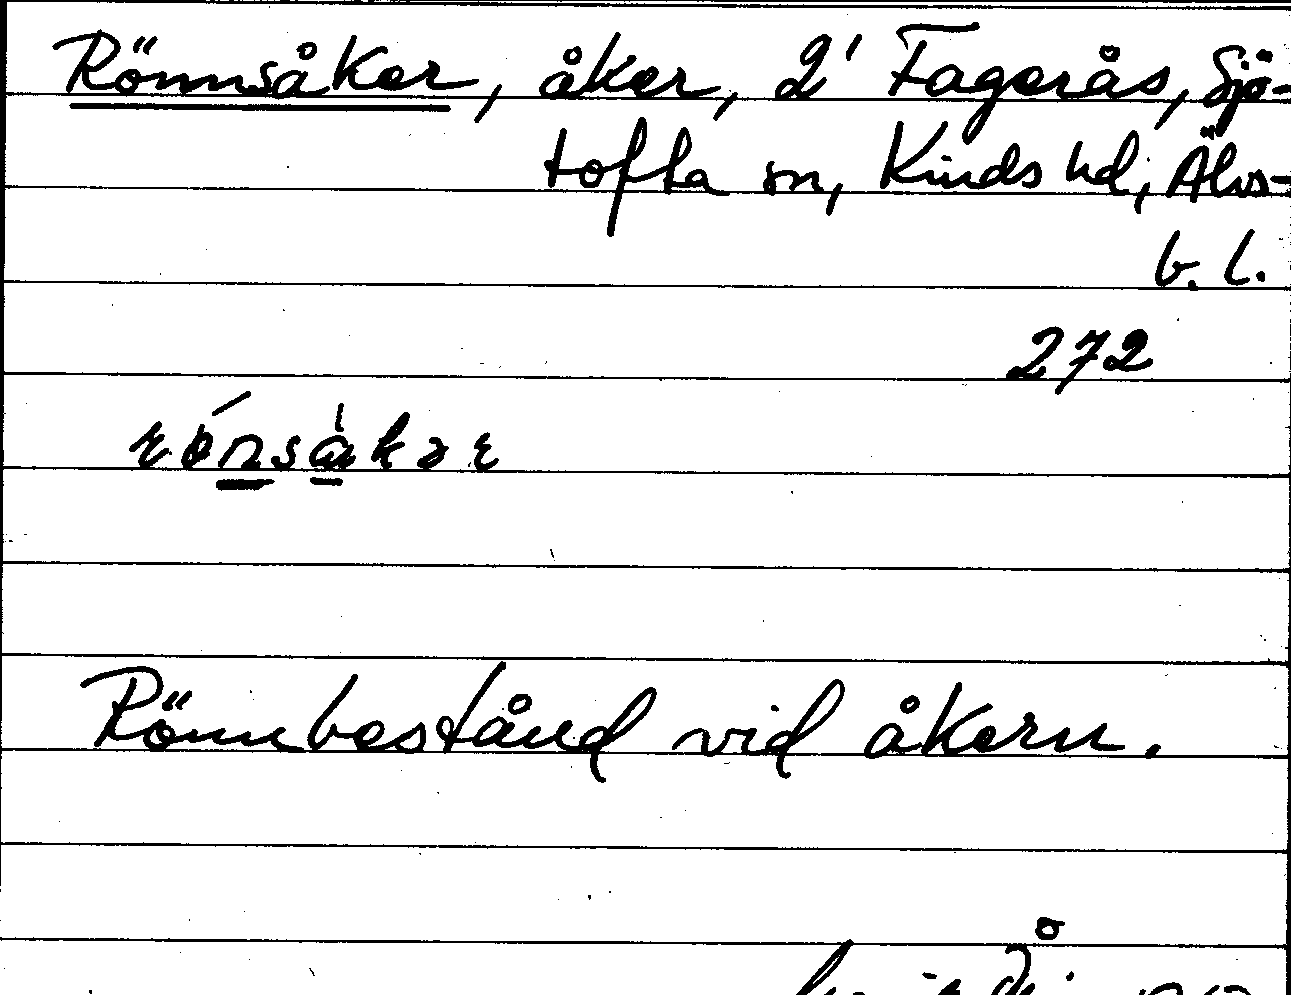 Rönnsåker, åker, 2' Fagerås, Sjö-
tofta sn, Kinds hd, Älvs-
b. l.
272
Rönnbestånd vid åkern.